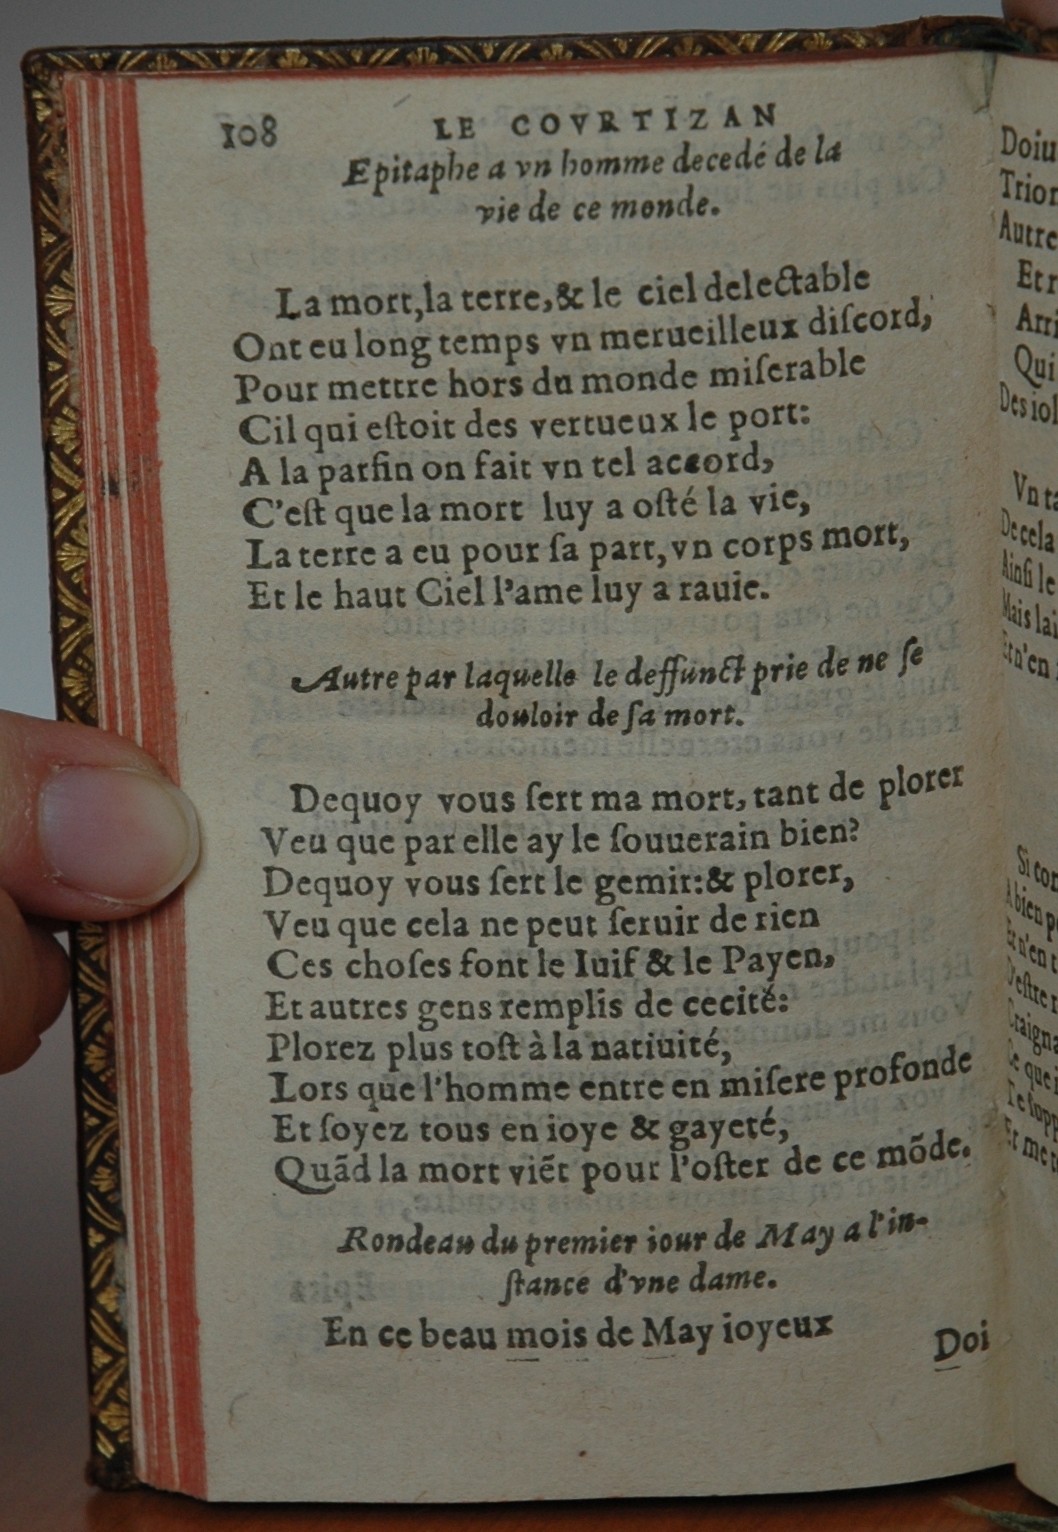 108 LE COVRTIZAN
Epitaphe a vn homme decedé de la
vie de ce monde.
La mort, la terre, & le ciel delectable
Ont eu long temps vn merueilleux diſcord,
Pour mettre hors du monde miſerable
Cil qui eſtoit des vertueux le port:
A la parfin on fait vn tel accord,
C'eſt que la mort luy a oſté la vie,
La terre a eu pour ſa part, vn corps mort,
Et le haut Ciel l'ame luy a rauie.
Autre par laquelle le deffunct prie de ne ſe
douloir de ſa mort.
Dequoy vous ſert ma mort, tant de plorer
Veu que par elle ay le ſouuerain bien?
Dequoy vous ſert le gemir: & plorer,
Veu que cela ne peut ſeruir de rien
Ces choſes font le Iuif & le Payen,
Et autres gens remplis de cecité:
Plorez plus toſt à la natiuité,
Lors que l'homme entre en miſere profonde
Et ſoyez tous en ioye & gayeté,
Quãd la mort viẽt pour l'oſter de ce mõde.
Rondeau du premier iour de May a l'in-
ſtance d'vne dame.
En ce beau mois de May ioyeux
Doi
Doiu
Trior
Autre
Et r
Arri
Qui
Des iol
Vn ta
De cela
Ainſi le
Mais lai
Et n'en
Si cor
A bien p
Et n'en t
D'eſtre r
Craigna
Ce que i
Te ſopp
Et me t